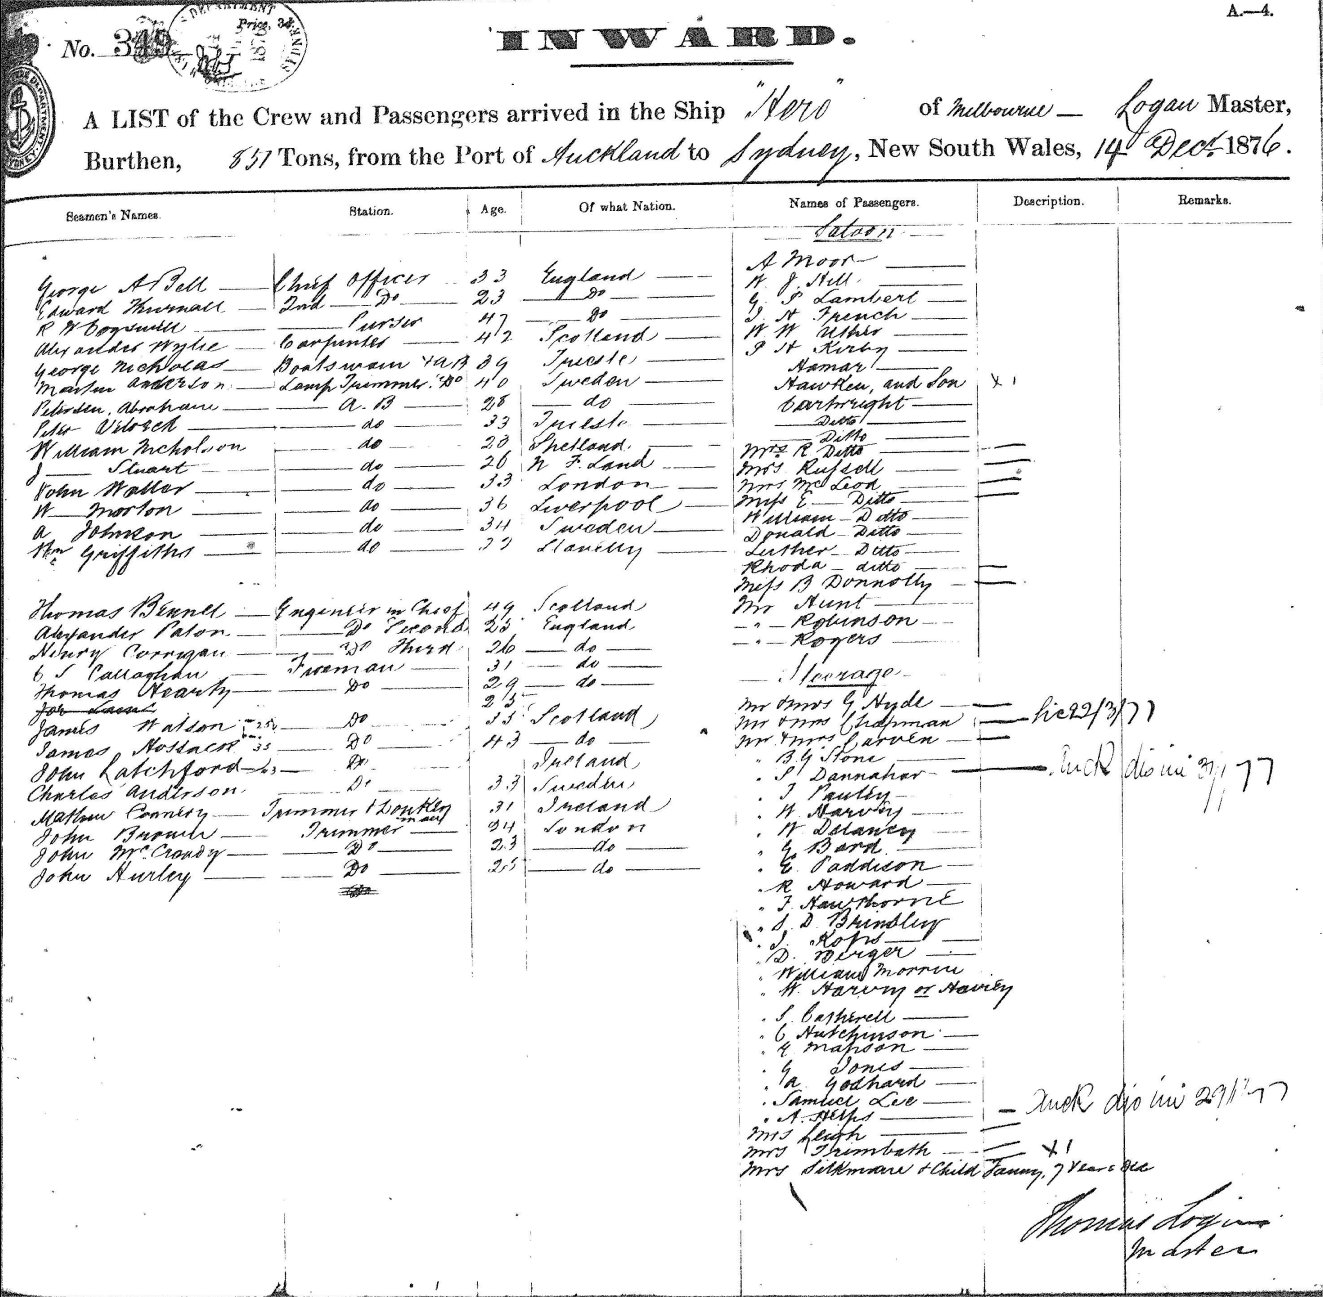 A.—4.
No. 349
Price, 3d.
INWARD.
A LIST of the Crew and Passengers arrived in the Ship "Hero" of Melbourne — Logan Master,
Burthen, 851 Tons, from the Port of Auckland to Sydney, New South Wales, 14 Dec. 1876.
Seamen's Names. Station. Age. Of what Nation. Names of Passengers. Description. Remarks.
George A Bell Chief Officer 33 England
Edward Thurnall 2nd Do 23 Do
R W Cogswell Purser 47 Do
Alexander Wylie Carpenter 42 Scotland
George Nicholas Boatswain & AB 39 Trieste
Martin Anderson Lamp Trimmer "Do 40 Sweden
Petersen, Abraham A. B 28 do
Peter do 33 Trieste
William Nicholson do 20 Shetland
J Stuart do 26 N F. Land
John Waller do 33 London
W Morton do 36 Liverpool
A Johnson do 34 Sweden
Wm Griffiths do 33 Llanelly
Thomas Bennet Engineer in Chief 49 Scotland
Alexander Paton Do Second 25 England
Henry Corrigan Do Third 26 do
C S Callaghan Fireman 31 do
Thomas Hearty Do 29 do
25
James Watson 25 Do 35 Scotland
James 35 Do 43 do
John Latchford 23 Do Ireland
Charles Anderson Do 33 Sweden
Mathew Connery Trimmer & Donkey man 31 Ireland
John Brown Trimmer 34 London
John McCready Do 23 do
John Hurley Do 25 do
Saloon
A Moor
W J. Hill
G S Lambert
J H French
W W Usher
J H Kirby
Hamar
Hawken, and Son X 1
Cartwright
Ditto
Ditto
Mrs R Ditto
Mrs Russell
Mrs McLeod
Miss E Ditto
William Ditto
Donald Ditto
Luther Ditto
Rhoda ditto
Miss B Donnolly
Mr Hunt
" Robinson
" Rogers
Steerage
Mr & Mrs G Hyde
Mr & Mrs Chapman 22/3/77
Mr & Mrs Carven
" B. G Stone
" S Dannaher Auck
" J Pauley
" W Harvey
" W Delaney
" G Bard
" E. Paddison
" R Howard
" F Hawthorne
" S. D. Brinsley
" J. Kofis
" D. Berger
" William Morrin
" W. Harvey or Havrey
" S. Catherell
" C Hutchinson
" G Mapson
" G Jones
" A Godhard
" Samuel Lee
" A. Helps Auck
Mrs Leigh
Mrs Trimbath X 1
Mrs Silkmore & Child Fanny, 7 Years Old
Thomas Logan
Master